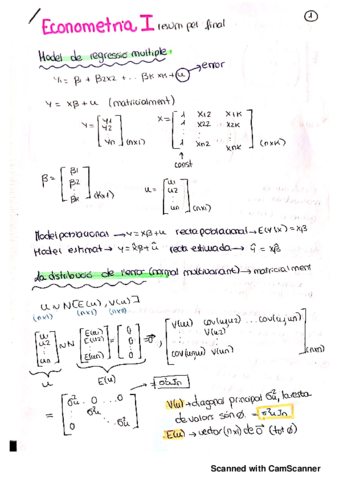 ①
Econometria I resum per final
Model de regressió multiple:
Y₁ = β₁ + β₂X₂ + ... βK XK + u → error
Y = Xβ + u (matricialment)
Y = [Y₁ Y₂ Yn] (nx1) X = [1 X12 X1K 1 X22 X2K 1 Xn2 XnK] (nxK)
↑ const
β = [β₁ β₂ βK] (Kx1) u = [u₁ u₂ un] (nx1)
Model poblacional → Y = Xβ + u recta poblacional → E(Y|X) = Xβ
Model estimat → Y = Xβ̂ + û recta estimada → Ŷ = Xβ
La distribució de l'error (normal multivariant) → matricialment
u ~ N[E(u), V(u)]
(nx1) (nx1) (nxn)
[u₁ u₂ un] ~ N [E(u₁) E(u₂) E(un)] = [0 0 0] = 0⃗, [V(u₁) cov(u₁u₂) ... cov(u₁,un) V(u₂) cov(un,u₁) V(un)] (nxn)
u E(u)
= σ²uIn
= [σ²u 0 ... 0 σ²u 0 σ²u]
V(u) → diagonal principal σ²u, la resta
de valors són ∅. = σ²uIn
E(u) → vector (nx1) de 0⃗ (tot ∅)
Scanned with CamScanner